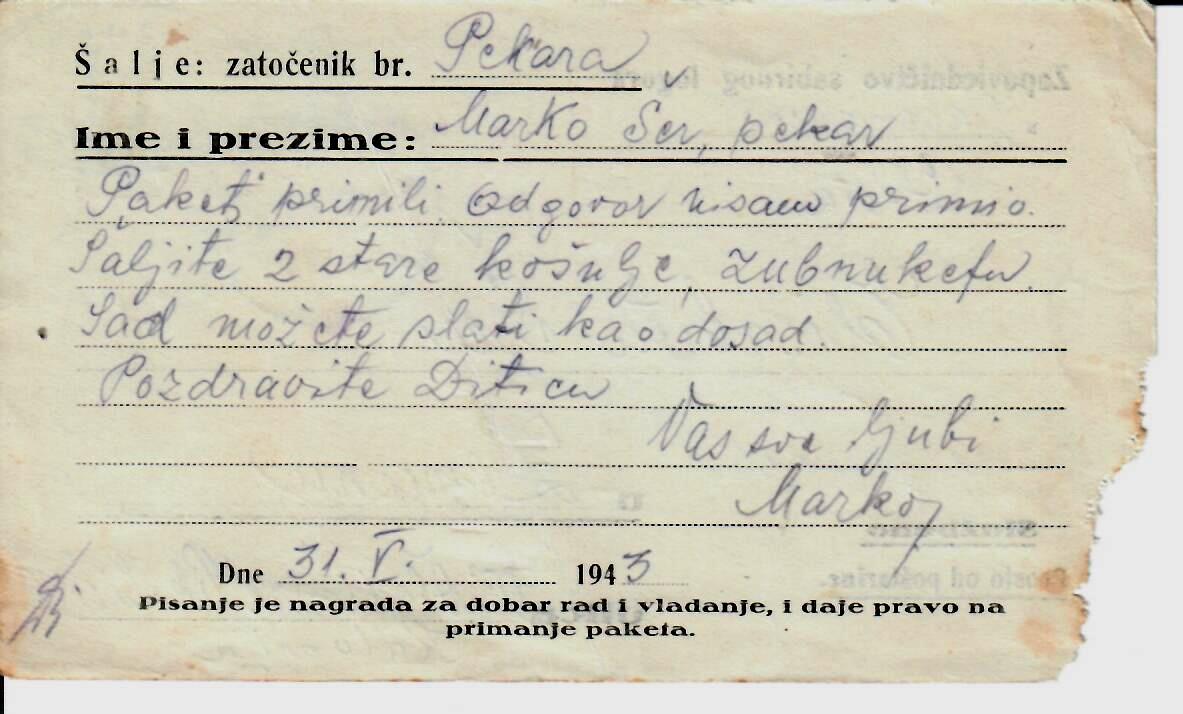 Šalje: zatočenik br. Pekara
Ime i prezime: Marko Šer, pekar
Paket primili. Odgovor nisam primio.
Šaljite 2 stare košulje, zubnu kefu.
Sad možete slati kao dosad.
Pozdravite Diticu
Vas sve ljubi
Marko
Dne 31. V. 1943
Pisanje je nagrada za dobar rad i vladanje, i daje pravo na
primanje paketa.